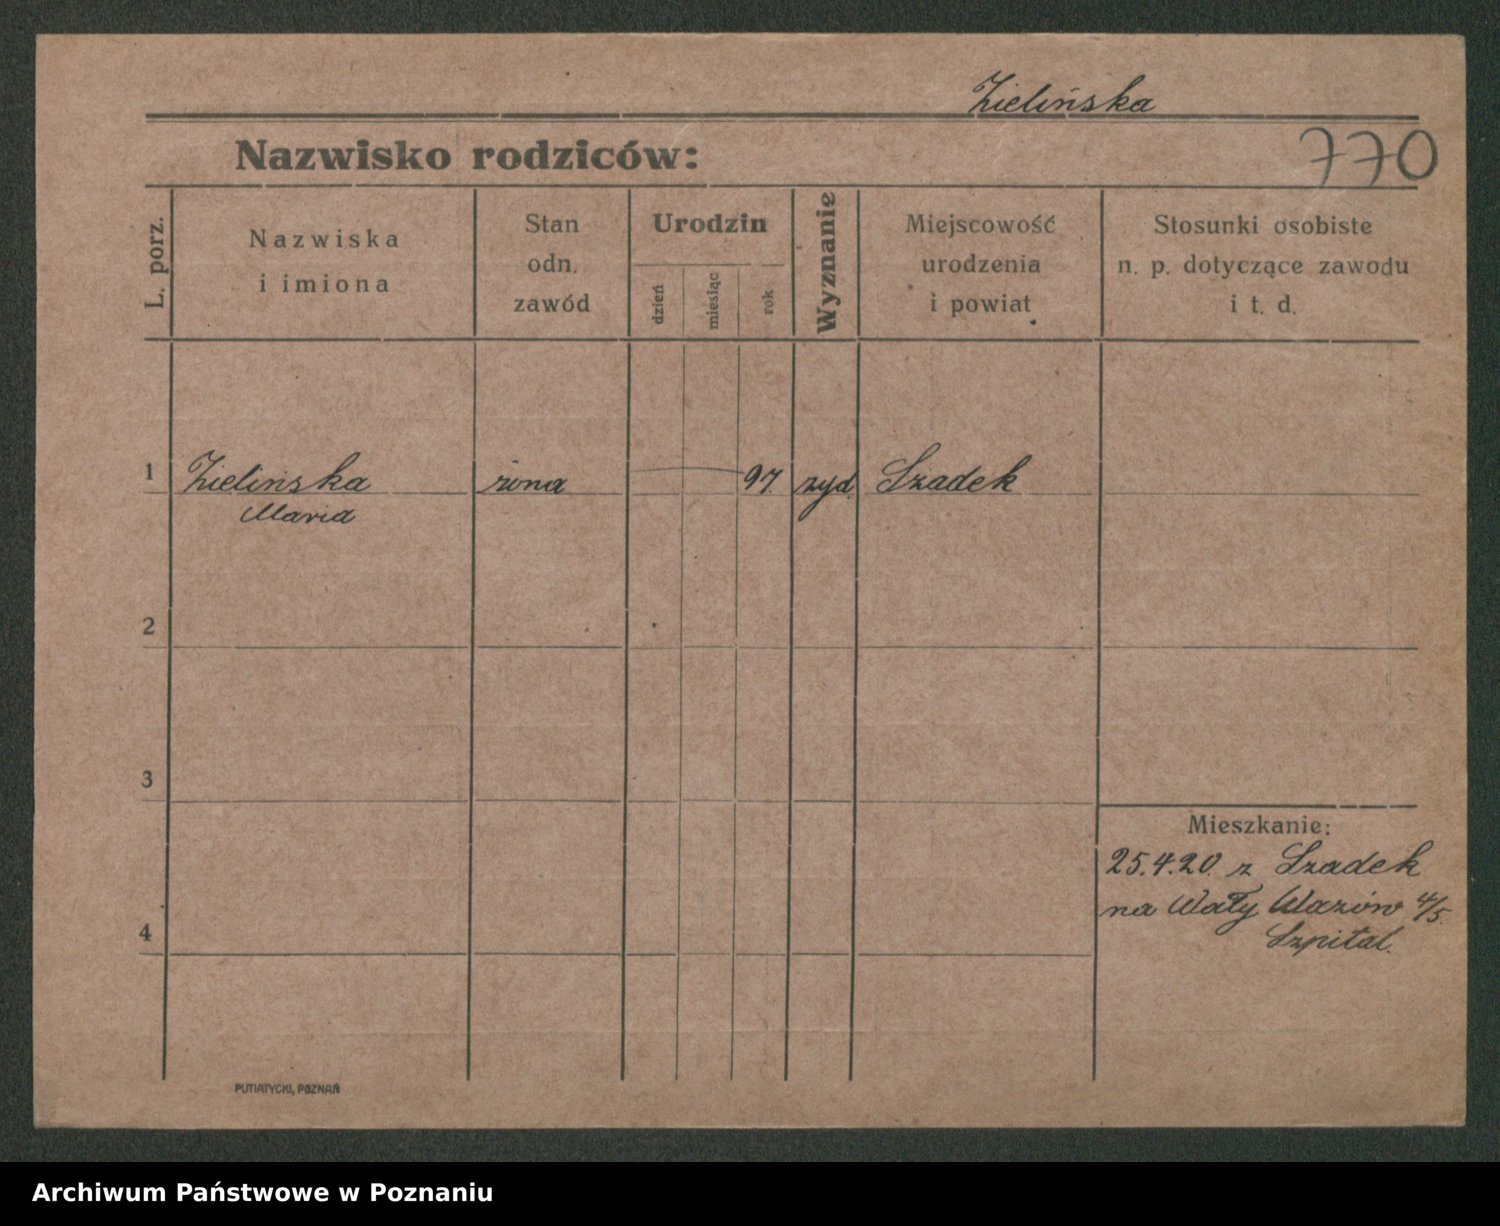 Zielińska
770
Nazwisko rodziców:
L. porz.
Nazwiska
i imiona
Stan
odn.
zawód
Urodzin
dzień
miesiąc
rok
Wyznanie
Miejscowość
urodzenia
i powiat
Stosunki osobiste
n. p. dotyczące zawodu
i t. d.
1
Zielińska
Maria
żona
97.
żyd.
Szadek
2
3
4
Mieszkanie:
25.4.20 z Szadek
na Wały Wazów 4/5.
Szpital.
PUTIATYCKI, POZNAŃ
Archiwum Państwowe w Poznaniu